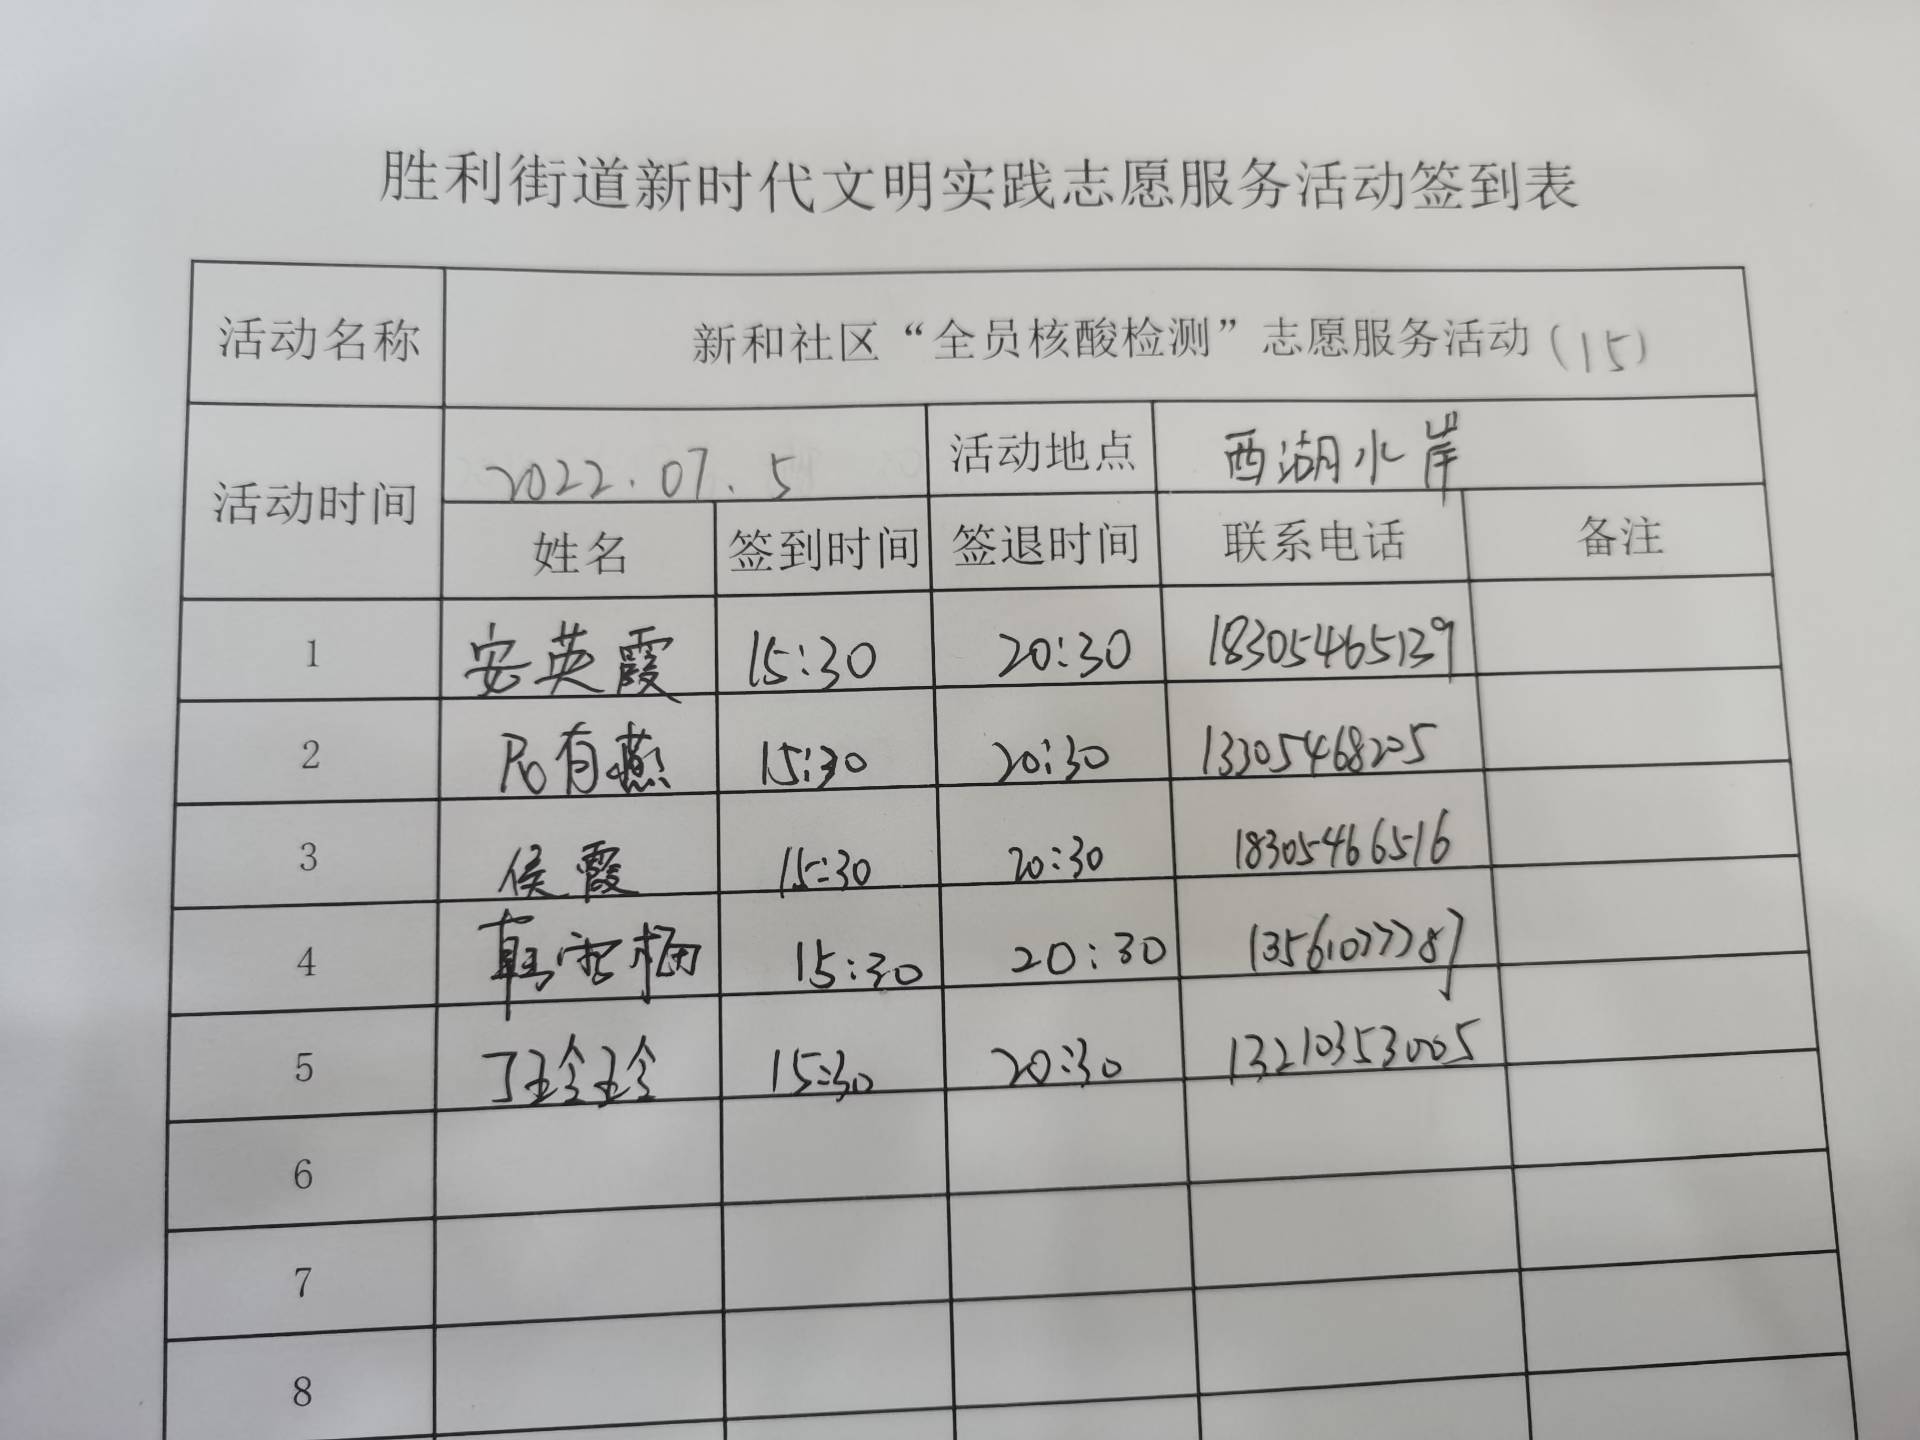 胜利街道新时代文明实践志愿服务活动签到表
活动名称 新和社区“全员核酸检测”志愿服务活动(15)
活动时间 2022.07.5 活动地点 西湖水岸
姓名 签到时间 签退时间 联系电话 备注
1 安英霞 15:30 20:30 18305465139
2 有燕 15:30 20:30 13305468205
3 侯霞 15:30 20:30 18305466516
4 韩雪梅 15:30 20:30 13561077787
5 丁玲玲 15:30 20:30 13210353005
6
7
8